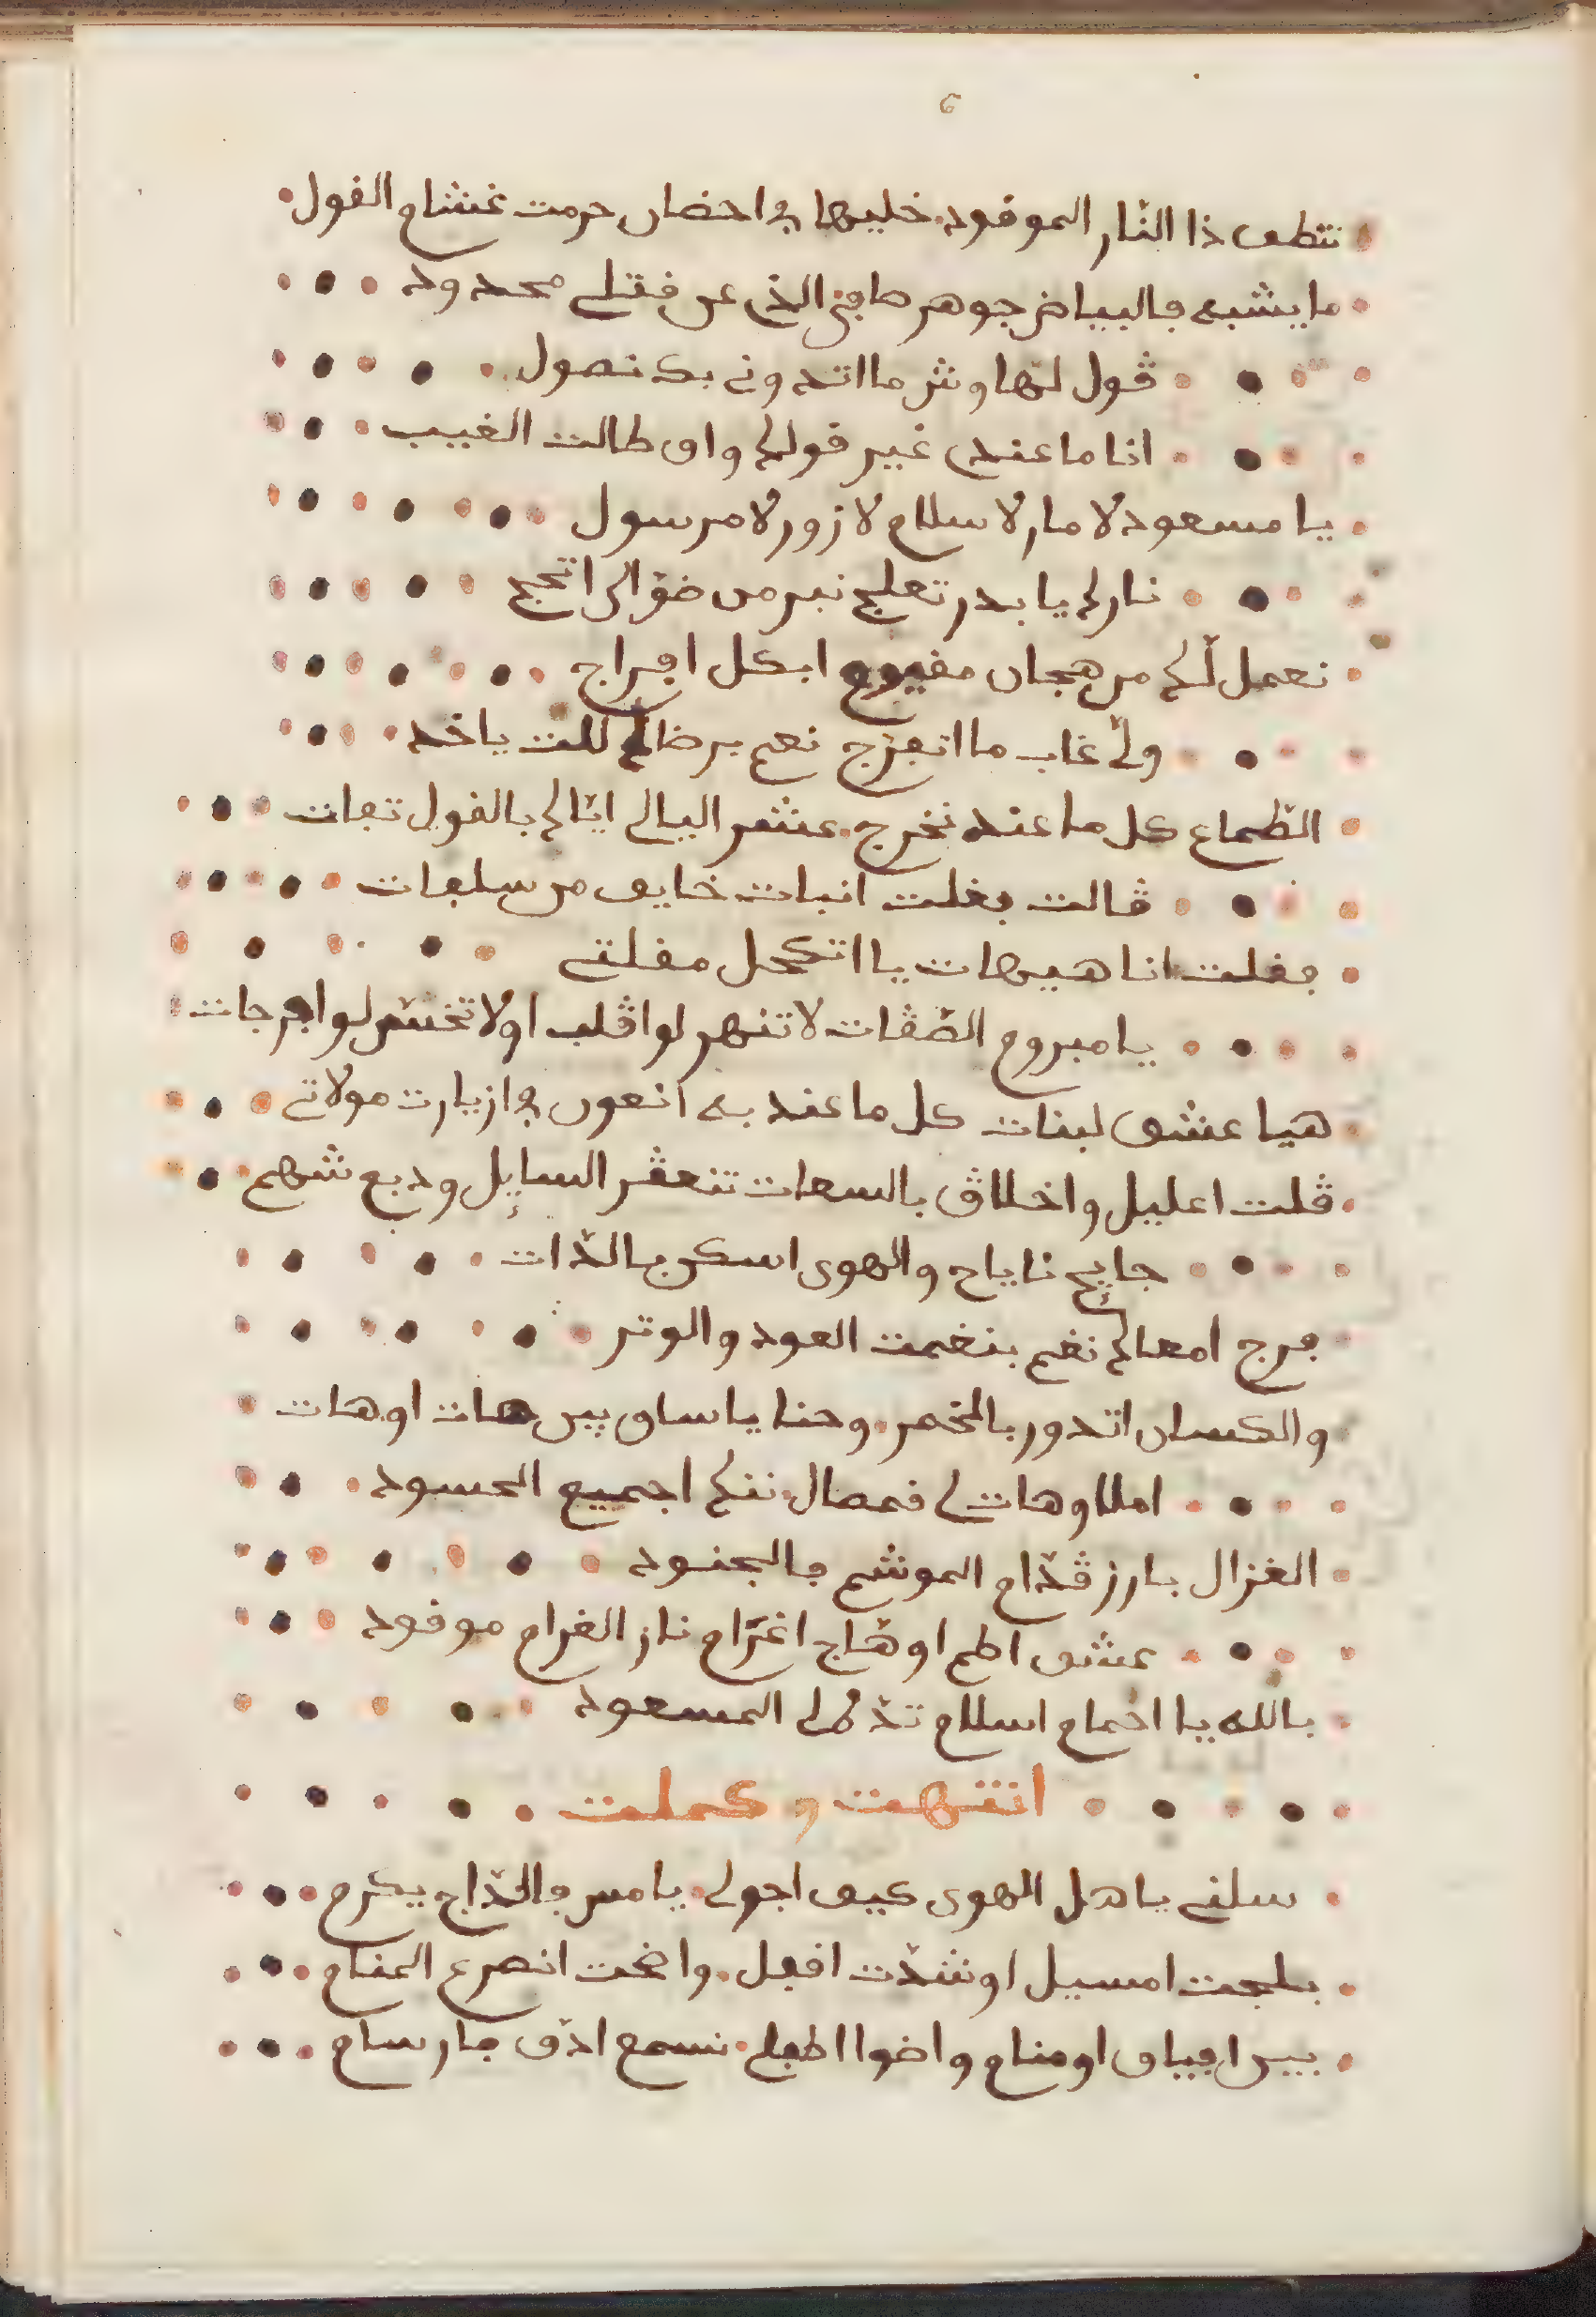 6
نتطف ذا النّار الموقود خليها في احضان حرمت غشام القول
ما يشبه بالبياض جوهر صافي الذي عن قتلي محدود
ڨول لها وش ما اتدوني بك نصول
انا ما عندي غير قولك وان طالت الغيب
يا مسعود لا مار لا سلام لا زور لا مرسول
نارك يا بدر تعلج نبر من ضوّ الى اتحج
نعمل لّك مرهجان مقيوم ابكل افراج
ولّي غاب ما اتفرّج نعم برضاك للت ياخد
الطّماع كل ما عند نخرج عشر اليالي ايّالي بالقول تبات
ڨالت بغلت انبات خايف من سلعات
فقلت انا هيهات يا اتكحل مقلتي
يا مبروم الصّڨات لا تنهر لواڨلب اولا تخش لو افرجات
هيا عشق لبنات كل ما عند به انعون في ازيارت مولاتي
ڨلت اعليل واخلاڨ بالسعات تنعڨر السايل ودبع شهم
جايح ناياح والهوى اسكن بالذّات
فرج امعاك نغم بنغمت العود والوتر
والكسان اتدور بالخمر وحنا يا ساق بين هات اوهات
املا وهات لي فمصال ننكي اجميع الحسود
الغزال بارز ڨدّام الموشم بالجنود
عشق اطم اوهّاج اغرّام نار الغرام موقود
بالله يا احمام اسلام تدّ لي المسعود
انتهت وكملت
سلني يا هل الهوى كيف اجولي يا من بالدّاج يكرم
بلجت امسيل اوشدّت اقبل واضحت انصرع المنام
بين افياق اومنام واضوا اطفلي نسمع ادّق بارسام